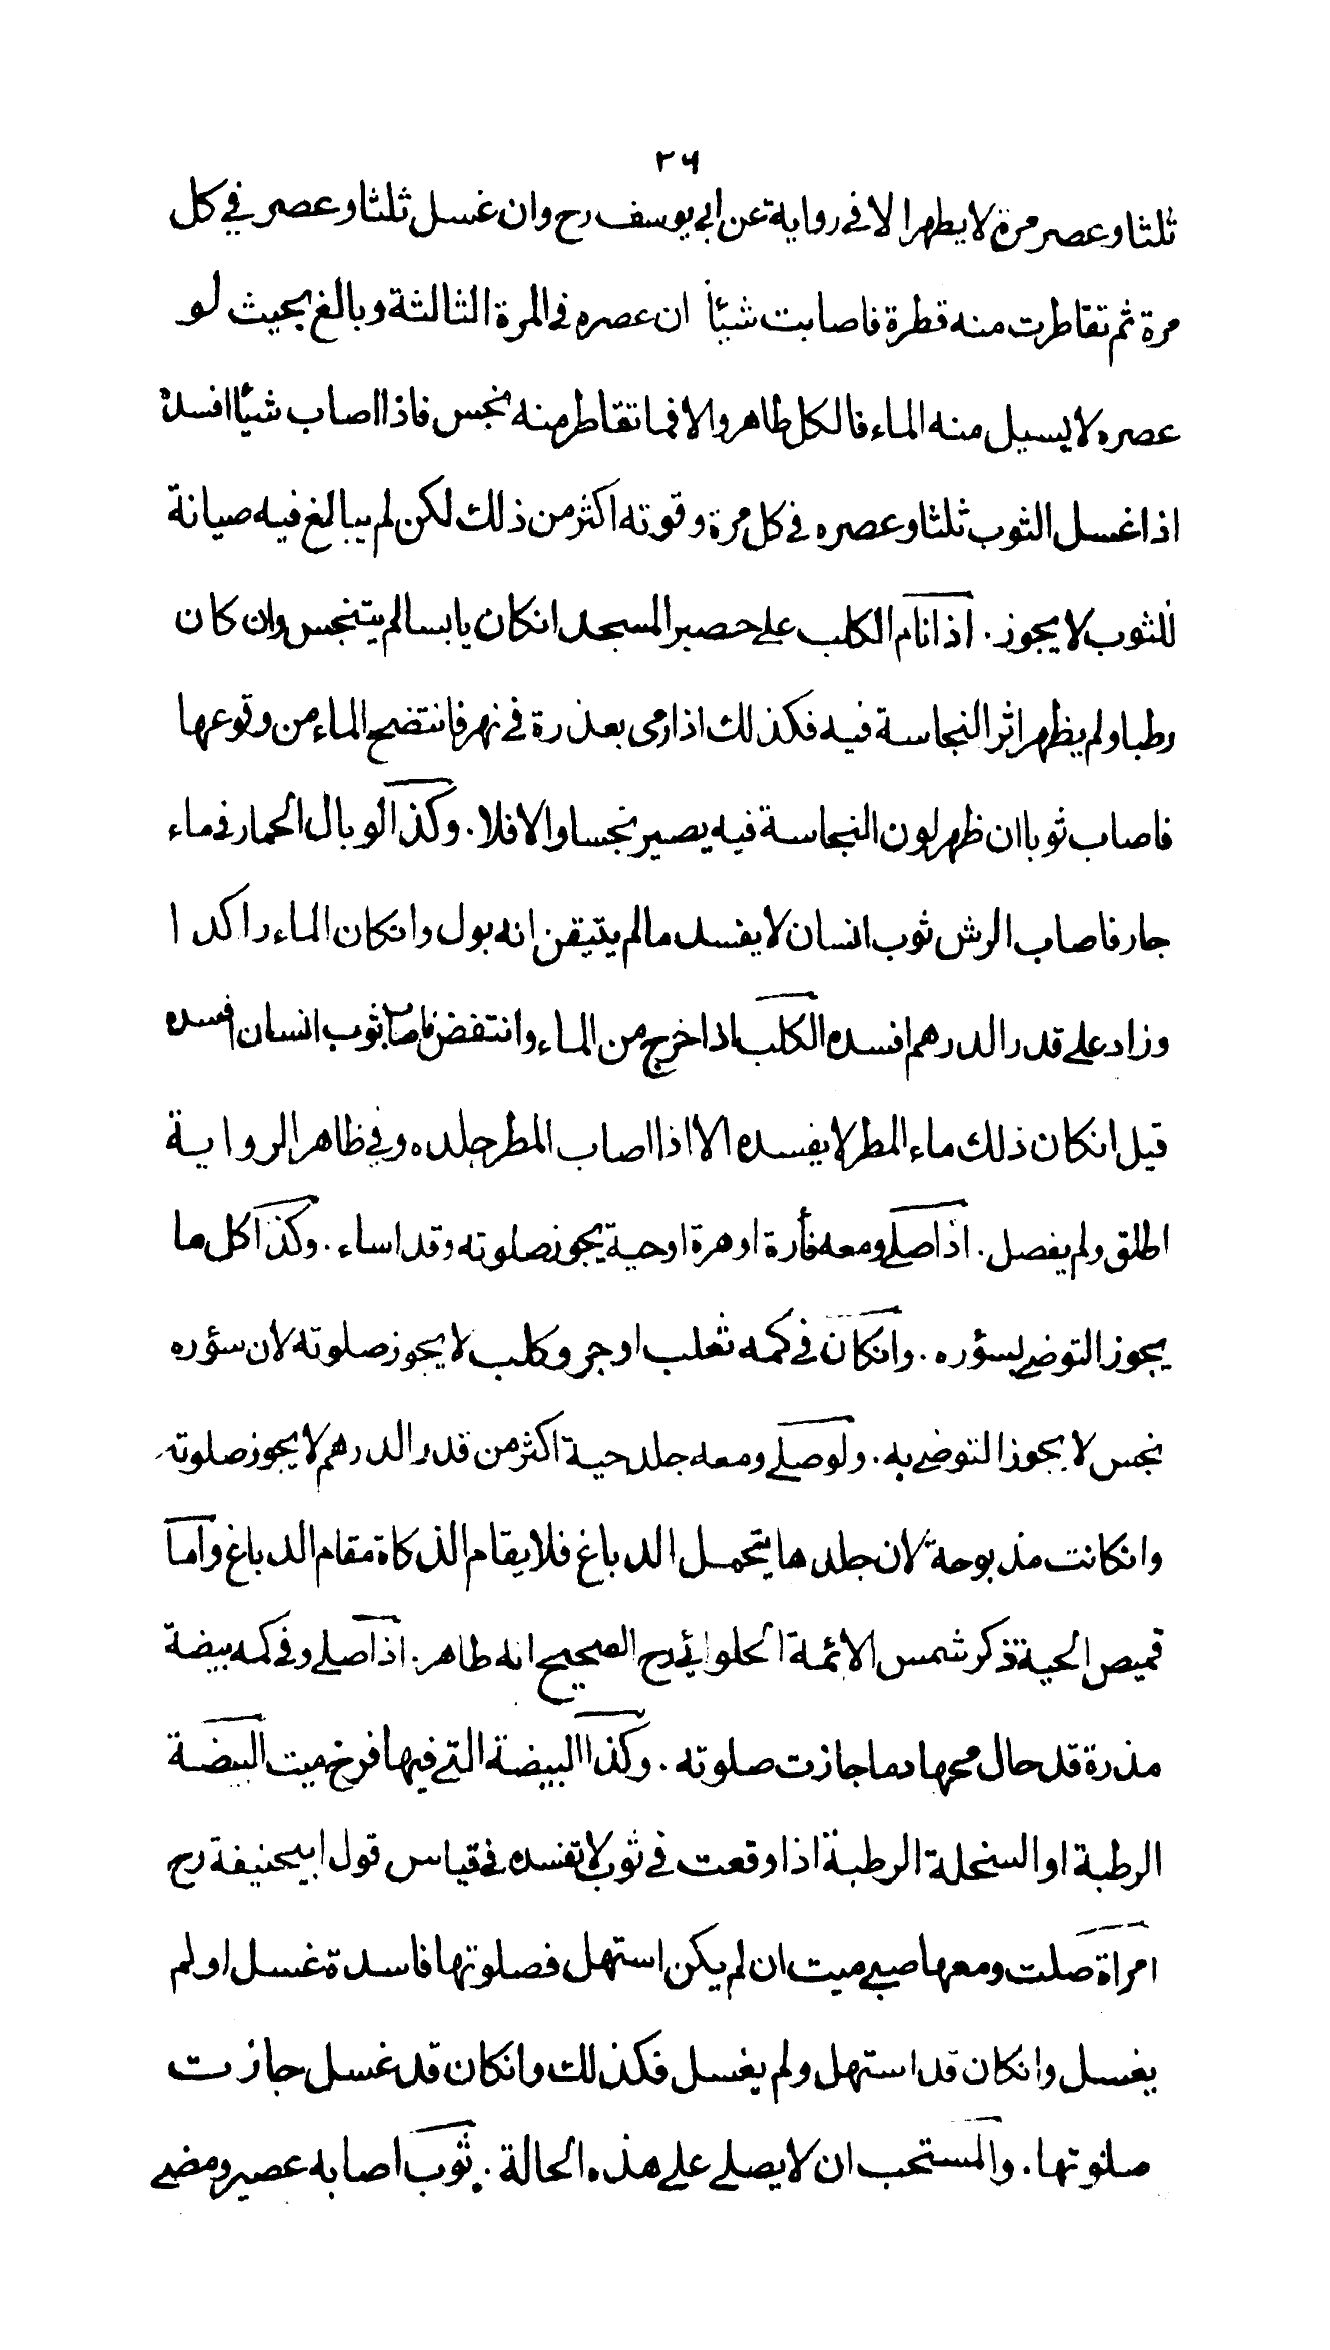 ٢٦
ثلثا وعصر مرة لا يطهر الا في رواية عن ابي يوسف رح وان غسل ثلثا وعصر في كل
مرة ثم تقاطرت منه قطرة فاصابت شيئا ان عصره في المرة الثالثة وبالغ بحيث لو
عصره لا يسيل منه الماء فالكل طاهر والا فما تقاطر منه نجس فاذا اصاب شيئا افسده
اذا غسل الثوب ثلثا وعصره في كل مرة وقوته اكثر من ذلك لكن لم يبالغ فيه صيانة
للثوب لا يجوز . اذا نام الكلب على حصير المسجد انكان يابسا لم يتنجس وان كان
رطبا ولم يظهر اثر النجاسة فيه فكذلك اذا رمى بعذرة في نهر فانتضح الماء من وقوعها
فاصاب ثوبا ان ظهر لون النجاسة فيه يصير نجسا والا فلا . وكذا لو بال الحمار في ماء
جار فاصاب الرش ثوب انسان لا يفسد مالم يتيقن انه بول وانكان الماء راكدا
وزاد على قدر الدرهم افسده الكلب اذا خرج من الماء وانتفض فاصاب ثوب انسان افسده
قيل انكان ذلك ماء المطر لا يفسده الا اذا اصاب المطر جلده وفي ظاهر الرواية
اطلق ولم يفصل . اذا صلى ومعه فأرة او هرة او حية يجوز صلوته وقد اساء . وكذا كل ما
يجوز التوضي بسؤره . وانكان في كمه ثعلب او جرو كلب لا يجوز صلوته لان سؤره
نجس لا يجوز التوضي به . ولو صلى ومعه جلد حية اكثر من قدر الدرهم لا يجوز صلوته
وانكانت مذبوحة لان جلدها يتحمل الدباغ فلا يقام الذكاة مقام الدباغ واما
قميص الحية ذكر شمس الائمة الحلوائي رح الصحيح انه طاهر . اذا صلى وفي كمه بيضة
مذرة قد حال محها دما جازت صلوته . وكذا البيضة التي فيها فرخ ميت البيضة
الرطبة او السخلة الرطبة اذا وقعت في ثوب لا تفسده في قياس قول ابيحنيفة رح
امراة صلت ومعها صبي ميت ان لم يكن استهل فصلوتها فاسدة غسل او لم
يغسل وانكان قد استهل ولم يغسل فكذلك وانكان قد غسل جازت
صلوتها . والمستحب ان لا يصلى على هذه الحالة . ثوب اصابه عصير ومضى